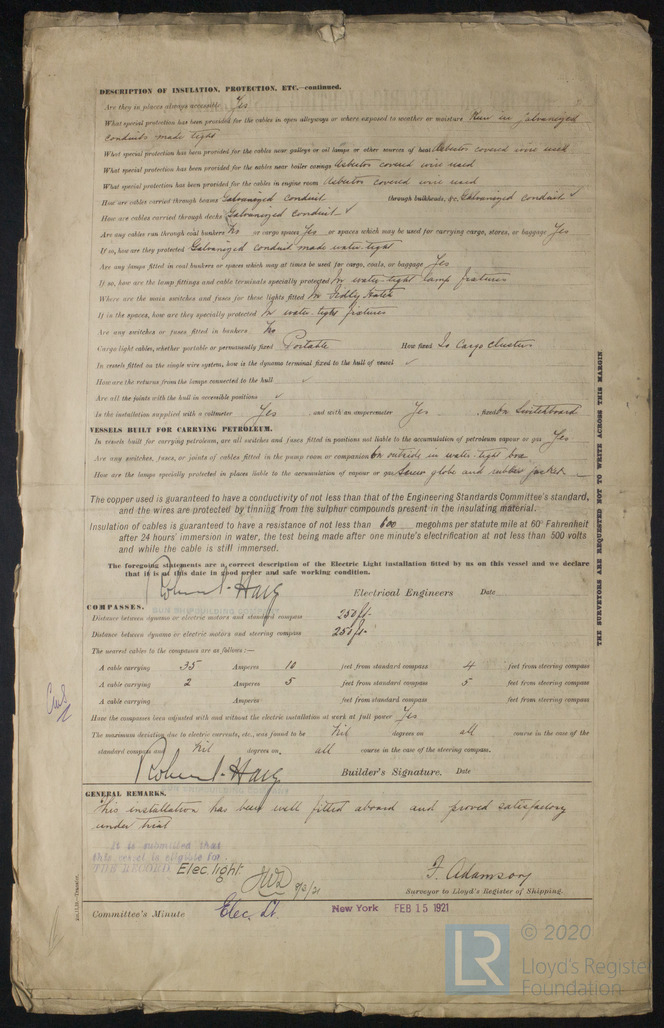 DESCRIPTION OF INSULATION, PROTECTION, ETC.—continued.
Are they in places always accessible Yes
What special protection has been provided for the cables in open alleyways or where exposed to weather or moisture Run in galvanized
conduits made tight
What special protection has been provided for the cables near galleys or oil lamps or other sources of heat Asbestos covered wire used
What special protection has been provided for the cables near boiler casings Asbestos covered wire used
What special protection has been provided for the cables in engine room Asbestos covered wire used
How are cables carried through beams Galvanized conduit through bulkheads, &c. Galvanized conduit ✓
How are cables carried through decks Galvanized conduit ✓
Are any cables run through coal bunkers No or cargo spaces Yes or spaces which may be used for carrying cargo, stores, or baggage Yes
If so, how are they protected Galvanized conduit made water-tight
Are any lamps fitted in coal bunkers or spaces which may at times be used for cargo, coals, or baggage Yes
If so, how are the lamp fittings and cable terminals specially protected In water-tight lamp fixtures
Where are the main switches and fuses for these lights fitted In
If in the spaces, how are they specially protected In water-tight fixtures
Are any switches or fuses fitted in bunkers No
Cargo light cables, whether portable or permanently fixed Portable How fixed To Cargo clusters
In vessels fitted on the single wire system, how is the dynamo terminal fixed to the hull of vessel ✓
How are the returns from the lamps connected to the hull ✓
Are all the joints with the hull in accessible positions ✓
Is the installation supplied with a voltmeter Yes , and with an amperemeter Yes , fixed On Switchboard
VESSELS BUILT FOR CARRYING PETROLEUM.
In vessels built for carrying petroleum, are all switches and fuses fitted in positions not liable to the accumulation of petroleum vapour or gas Yes
Are any switches, fuses, or joints of cables fitted in the pump room or companion On outside in water-tight box
How are the lamps specially protected in places liable to the accumulation of vapour or gas Screw globe and rubber jacket
The copper used is guaranteed to have a conductivity of not less than that of the Engineering Standards Committee's standard,
and the wires are protected by tinning from the sulphur compounds present in the insulating material.
Insulation of cables is guaranteed to have a resistance of not less than 600 megohms per statute mile at 60° Fahrenheit
after 24 hours' immersion in water, the test being made after one minute's electrification at not less than 500 volts
and while the cable is still immersed.
The foregoing statements are a correct description of the Electric Light installation fitted by us on this vessel and we declare
that it is at this date in good order and safe working condition.
Robert Haig Electrical Engineers Date
COMPASSES.
Distance between dynamo or electric motors and standard compass 250 ft.
Distance between dynamo or electric motors and steering compass 250 ft.
The nearest cables to the compasses are as follows:—
A cable carrying 35 Amperes 10 feet from standard compass 4 feet from steering compass
A cable carrying 2 Amperes 5 feet from standard compass 5 feet from steering compass
A cable carrying Amperes feet from standard compass feet from steering compass
Have the compasses been adjusted with and without the electric installation at work at full power Yes
The maximum deviation due to electric currents, etc., was found to be Nil degrees on all course in the case of the
standard compass and Nil degrees on all course in the case of the steering compass.
Robert Haig Builder's Signature. Date
GENERAL REMARKS.
This installation has been well fitted aboard and proved satisfactory
under trial
It is submitted that
this vessel is eligible for
THE RECORD Elec. light.
JWD 9/3/21
F. Adamson
Surveyor to Lloyd's Register of Shipping.
Committee's Minute Elec. Lt. New York FEB 15 1921
THE SURVEYORS ARE REQUESTED NOT TO WRITE ACROSS THIS MARGIN
LR
© 2020
Lloyd's Register
Foundation